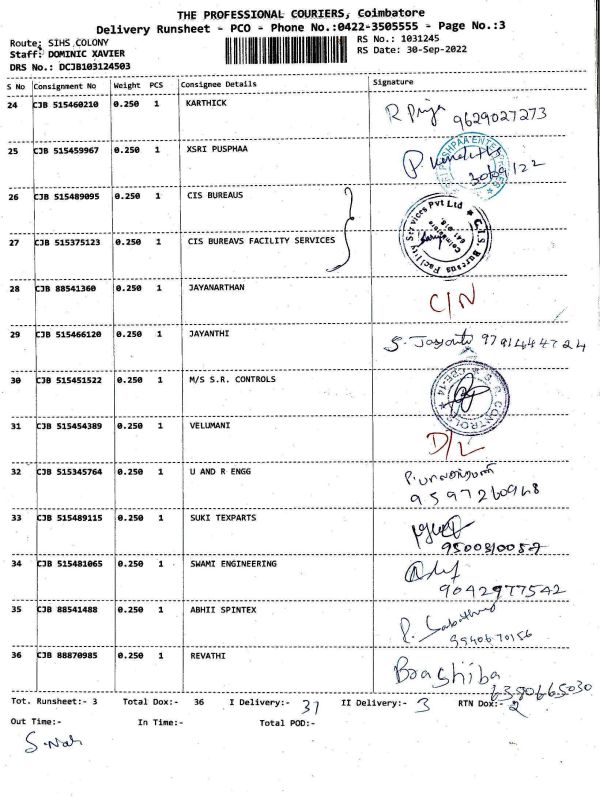 THE PROFESSIONAL COURIERS, Coimbatore
Delivery Runsheet - PCO - Phone No.:0422-3505555 - Page No.:3
Route: SIHS COLONY RS No.: 1031245
Staff: DOMINIC XAVIER RS Date: 30-Sep-2022
DRS No.: DCJB103124503
S No Consignment No Weight PCS Consignee Details Signature
24 CJB 515460210 0.250 1 KARTHICK R Priya 9629027273
25 CJB 515459967 0.250 1 XSRI PUSPHAA 30/09/22
26 CJB 515489095 0.250 1 CIS BUREAUS
27 CJB 515375123 0.250 1 CIS BUREAVS FACILITY SERVICES C.I.S. Bureaus Facility Services Pvt Ltd Coimbatore
28 CJB 88541360 0.250 1 JAYANARTHAN C/N
29 CJB 515466120 0.250 1 JAYANTHI S. Jayanthi 9791444724
30 CJB 515451522 0.250 1 M/S S.R. CONTROLS S.R. CONTROLS
31 CJB 515454389 0.250 1 VELUMANI D/L
32 CJB 515345764 0.250 1 U AND R ENGG 9597260968
33 CJB 515489115 0.250 1 SUKI TEXPARTS 9500310057
34 CJB 515481065 0.250 1 SWAMI ENGINEERING 9042977542
35 CJB 88541488 0.250 1 ABHII SPINTEX 9940670156
36 CJB 88870985 0.250 1 REVATHI 6380665030
Tot. Runsheet:- 3 Total Dox:- 36 I Delivery:- 31 II Delivery:- 3 RTN Dox:- 2
Out Time:- In Time:- Total POD:-